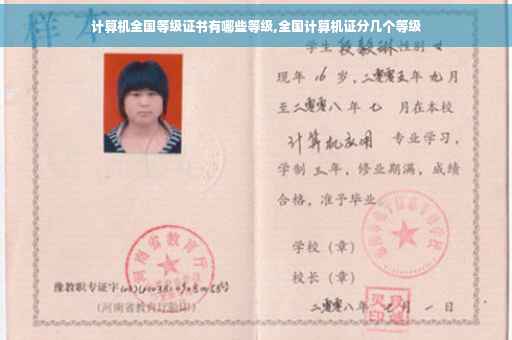 计算机全国等级证书有哪些等级,全国计算机证分几个等级
样本
学生 性别 女
现年 16 岁,二零零五年 九月
至二零零八年 七 月在本校
计算机应用 专业学习,
学制 三年,修业期满,成绩
合格,准予毕业
学校(章)
校长(章)
二零零八年 七 月 一 日
河南省教育厅
豫教职专证字
(河南省教育厅验印)